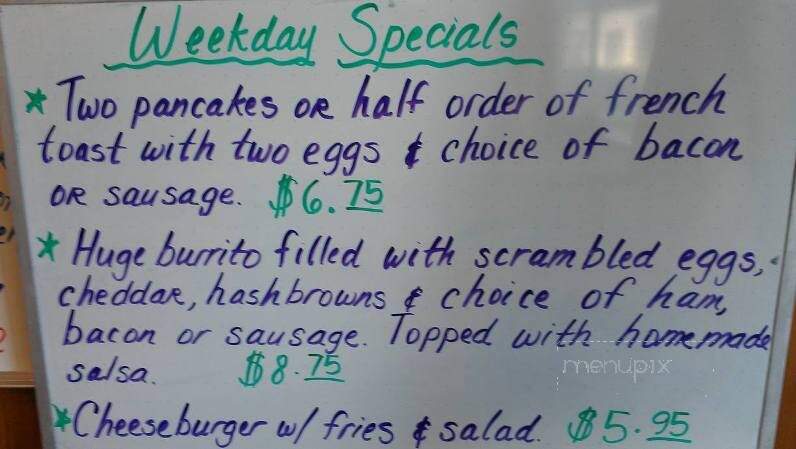 Weekday Specials
* Two pancakes OR half order of french
toast with two eggs & choice of bacon
OR sausage. $6.75
* Huge burrito filled with scrambled eggs,
cheddar, hashbrowns & choice of ham,
bacon or sausage. Topped with homemade
salsa. $8.75
menupix
* Cheeseburger w/ fries & salad. $5.95